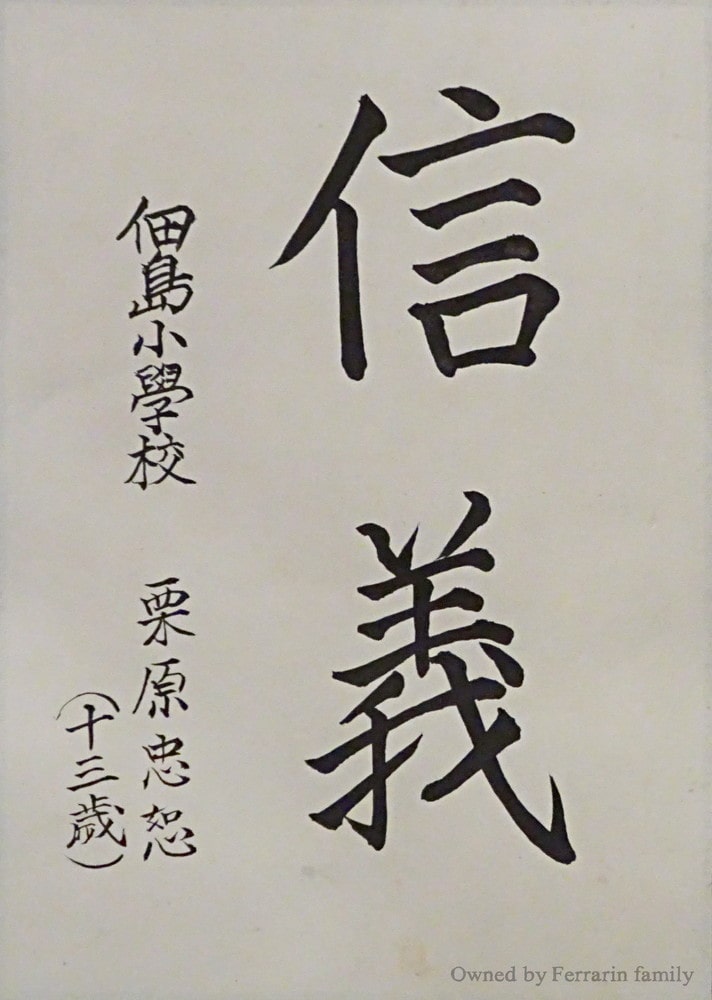 信義
佃島小學校 栗原忠恕
（十三歲）
Owned by Ferrarin family